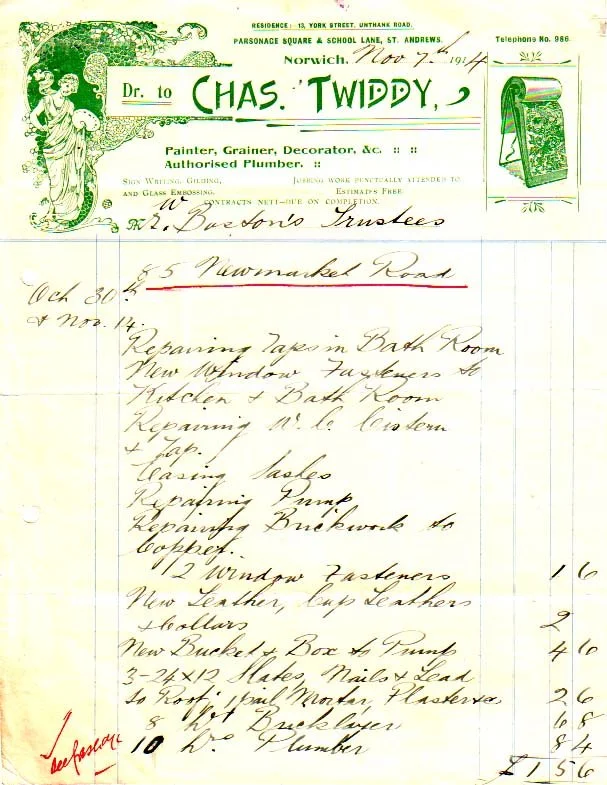 RESIDENCE: 13, YORK STREET, UNTHANK ROAD.
PARSONAGE SQUARE & SCHOOL LANE, ST. ANDREWS.
Telephone No. 986.
Norwich, Nov 7th 1914
Dr. to CHAS. TWIDDY,
Painter, Grainer, Decorator, &c.
Authorised Plumber.
SIGN WRITING, GILDING, AND GLASS EMBOSSING.
JOBBING WORK PUNCTUALLY ATTENDED TO
ESTIMATES FREE
CONTRACTS NETT—DUE ON COMPLETION.
Trustees
85 Newmarket Road
Oct 30th
& Nov. 14.
Repairing Taps in Bath Room
New Window Fasteners to
Kitchen & Bath Room
Repairing W. C. Cistern
& Tap.
Easing Sashes
Repairing Pump
Repairing Brickwork to
Copper.
12 Window Fasteners 1 6
New Leather, Cup Leathers
& Collars 2
New Bucket & Box to Pump 4 6
3-24x12 Slates, Nails & Lead
to Roof, 1 pail Mortar, Plaster &c 2 6
8 hrs Bricklayer 6 8
10 hrs Plumber 8 4
£ 1 5 6